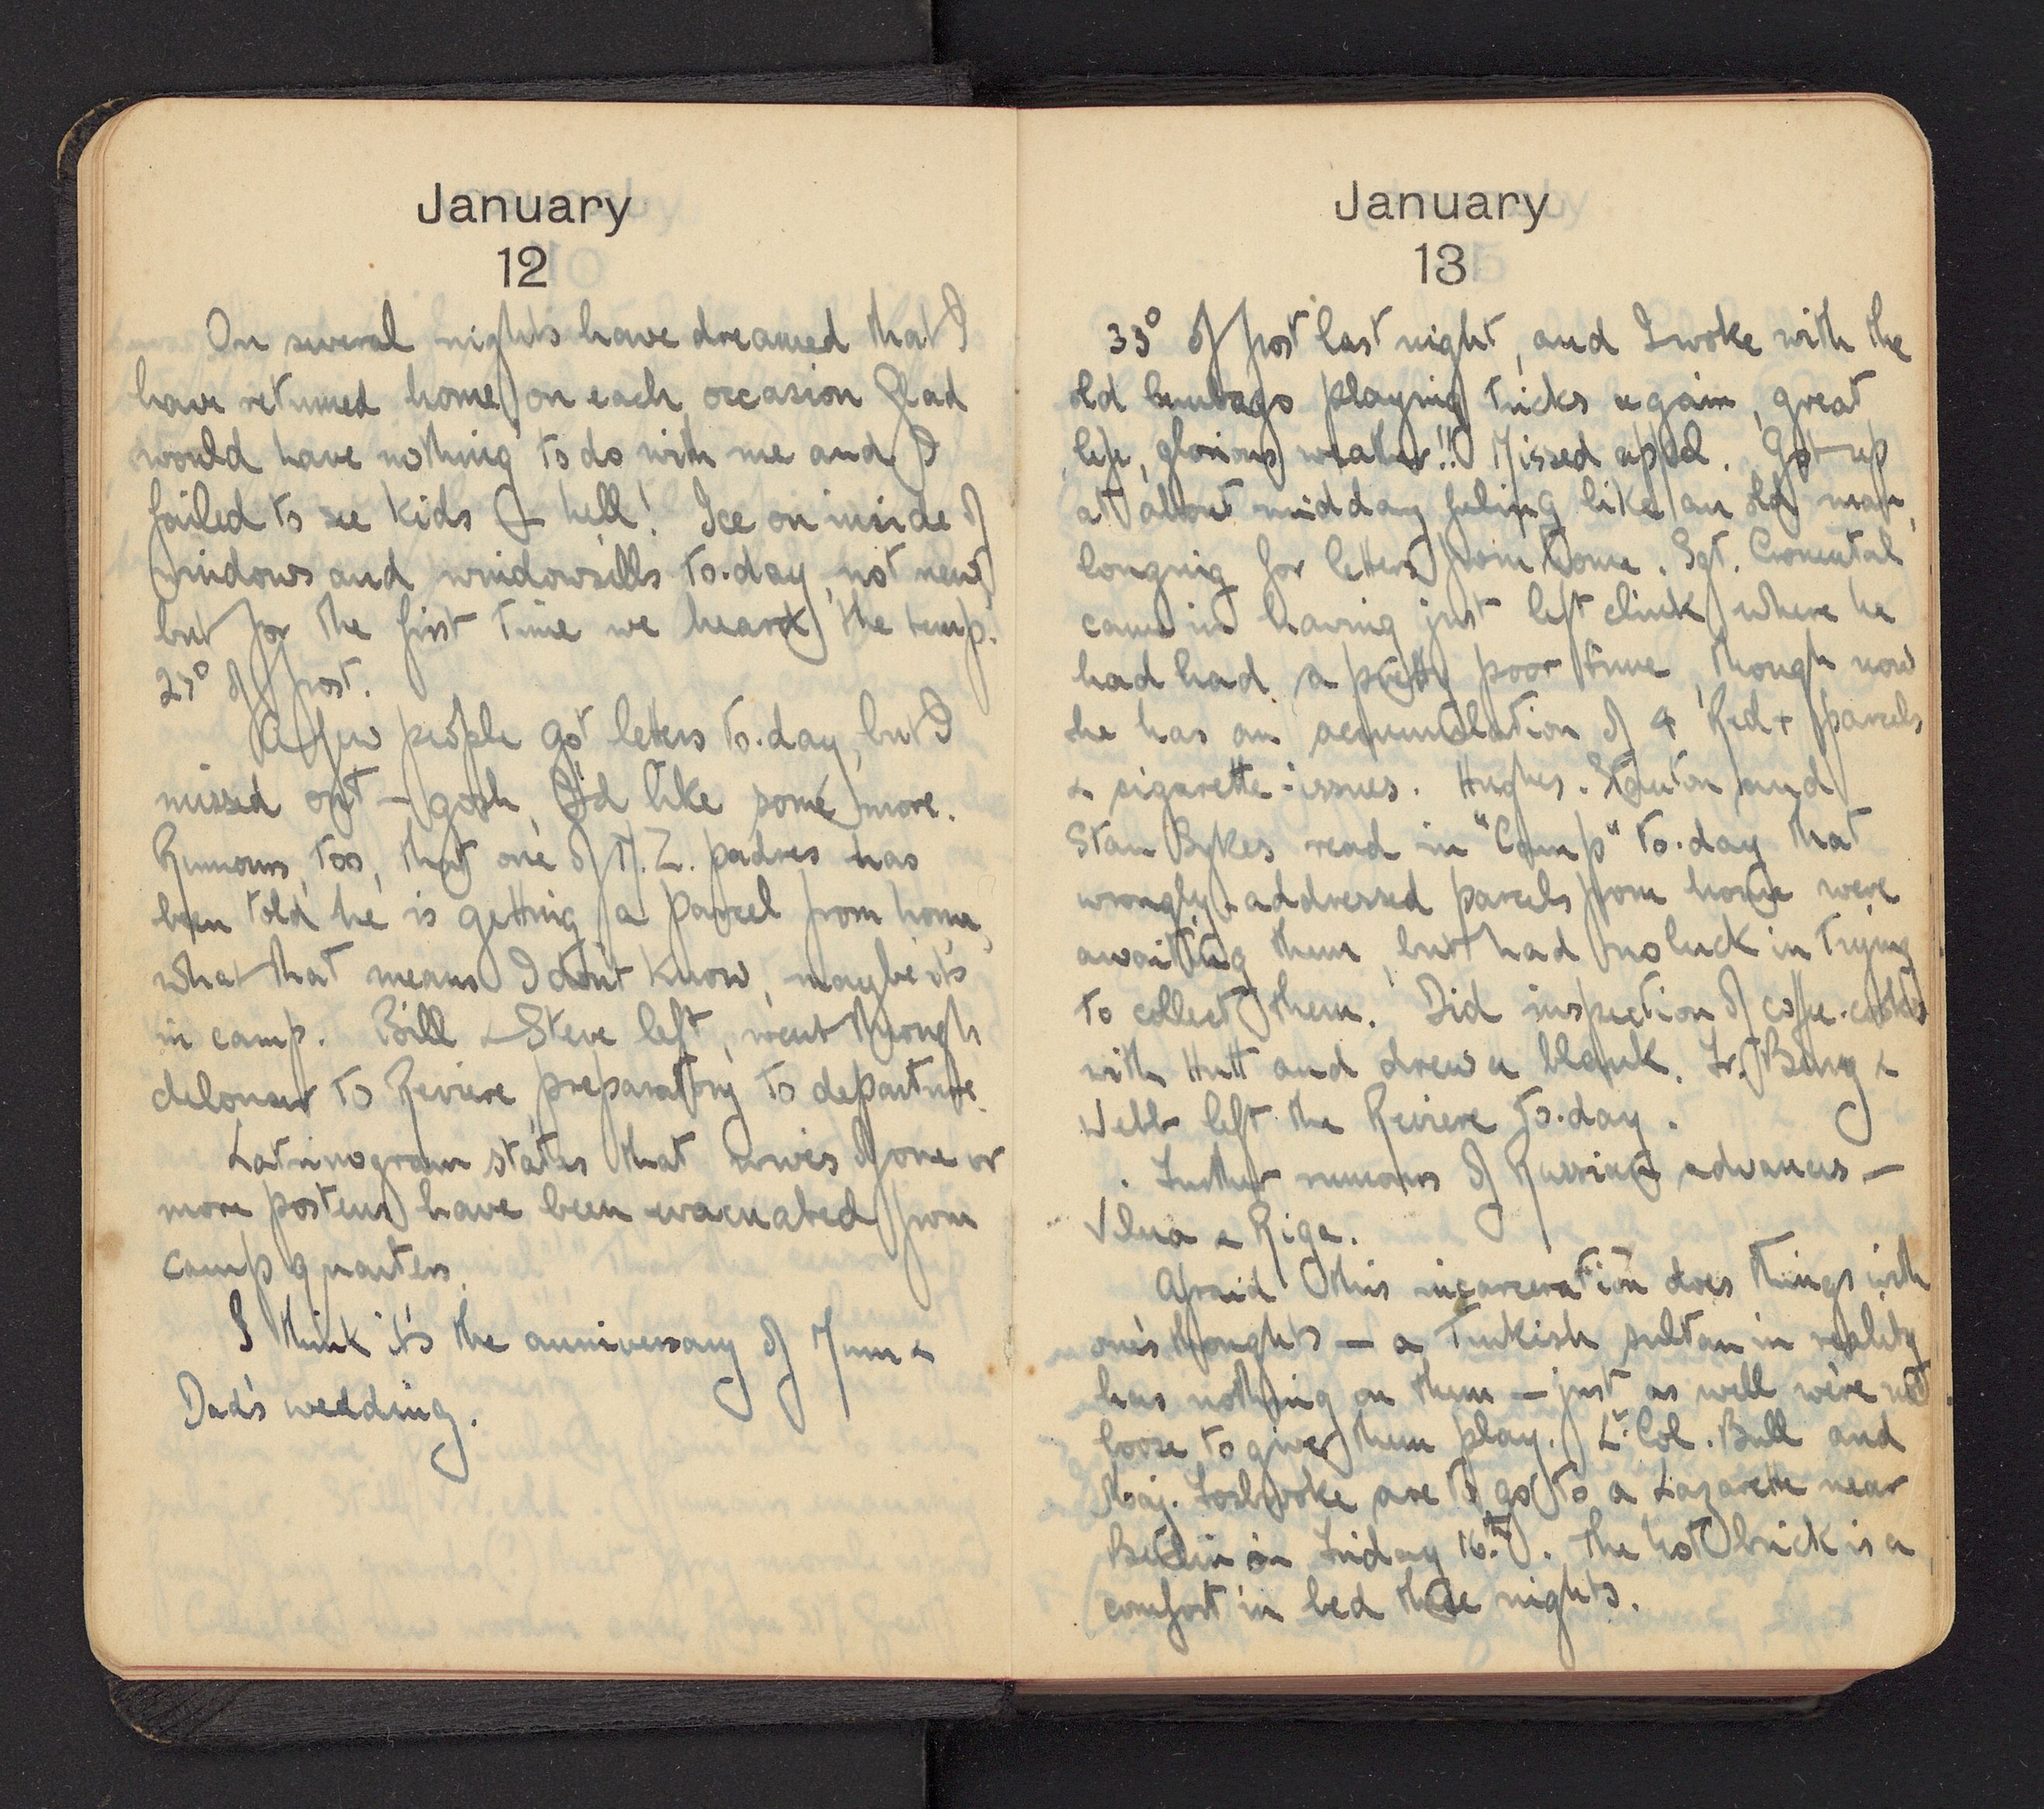 January
12
On several nights have dreamed that I
have returned home, on each occasion Glad
would have nothing to do with me and I
failed to see kids & hell! Ice on inside of
windows and windowsills to-day, not new
but for the first time we heard the temp.
27° of frost.
A few people got letters to-day, but I
missed out – gosh, I'd like some more.
Rumours, too, that one of N.Z. padres has
been told he is getting a parcel from home,
what that means I don't know, maybe it's
in camp. Bill & Steve left, went through
delouser to Reviere preparatory to departure.
Latrinogram states that wives of one or
more postens have been evacuated from
camp quarters.
I think it's the anniversary of Mum &
Dad's wedding.
January
13
33° of frost last night, and I woke with the
old lumbago playing tricks again, great
life, glorious weather!! Missed appel. Got up
at about midday feeling like an old man,
longing for letters from home. Sgt.
came in having just left clink where he
had had a pretty poor time, though now
he has an accumulation of 4 Red + parcels
& cigarette-issues. Hughes. and
Stan Sykes read in "Camp" to-day that
wrongly-addressed parcels from home were
awaiting them, but had no luck in trying
to collect them. Did inspection of coffee-
with Hutt and drew a blank. Fr. Bing &
Webb left the Reviere to-day.
Further rumours of Russian advances –
Vlna & Riga.
Afraid this incarceration does things with
one's thoughts – a Turkish sultan in reality
has nothing on them – just as well we're not
loose to give them play. Lt. Col. Bull and
Maj. Fosbrooke are to go to a Lazarette near
Berlin on Friday 16th. The hot brick is a
comfort in bed these nights.